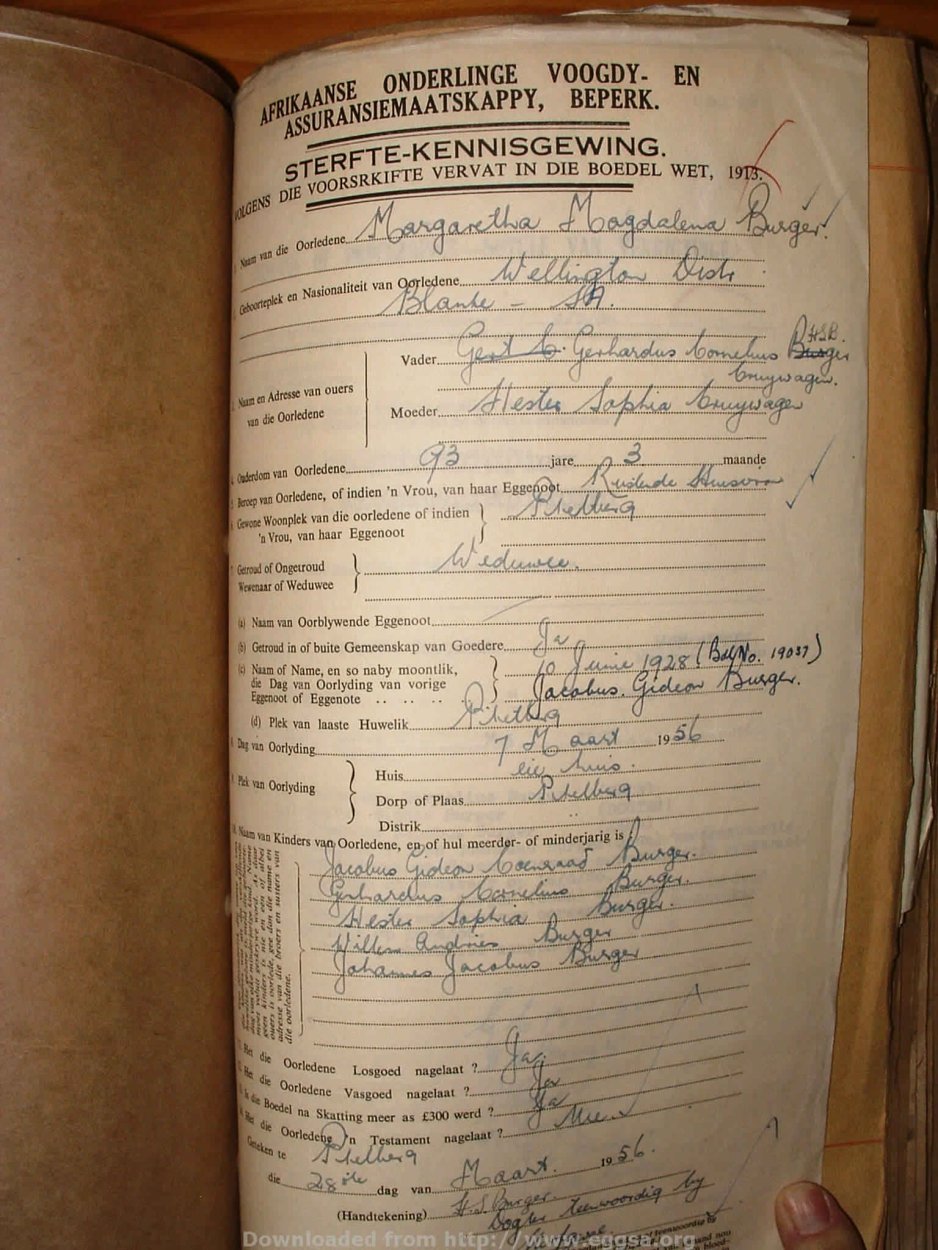 AFRIKAANSE ONDERLINGE VOOGDY- EN
ASSURANSIEMAATSKAPPY, BEPERK.
STERFTE-KENNISGEWING.
VOLGENS DIE VOORSRKIFTE VERVAT IN DIE BOEDEL WET, 1913.
Naam van die Oorledene Margaretha Magdalena Burger.
Geboorteplek en Nasionaliteit van Oorledene Wellington Distr
Blanke - SA.
Naam en Adresse van ouers van die Oorledene
Vader Gert C. Gerhardus Cornelius Burger H.S.B.
Cruywagen.
Moeder Hester Sophia Cruywagen
Ouderdom van Oorledene 93 jare 3 maande
Beroep van Oorledene, of indien 'n Vrou, van haar Eggenoot Rustende Huisvrou
Gewone Woonplek van die oorledene of indien 'n Vrou, van haar Eggenoot P'ketberg
Getroud of Ongetroud Wewenaar of Weduwee Weduwee.
(a) Naam van Oorblywende Eggenoot
(b) Getroud in of buite Gemeenskap van Goedere Ja
(c) Naam of Name, en so naby moontlik, 10 Junie 1928 (Boe No. 19037)
die Dag van Oorlyding van vorige
Eggenoot of Eggenote Jacobus Gideon Burger.
(d) Plek van laaste Huwelik P'ketberg
Dag van Oorlyding 7 Maart 1956
Plek van Oorlyding
Huis eie huis.
Dorp of Plaas P'ketberg
Distrik
10. Naam van Kinders van Oorledene, en of hul meerder- of minderjarig is
Jacobus Gideon Coenraad Burger.
Gerhardus Cornelius Burger.
Hester Sophia Burger.
Willem Andries Burger
Johannes Jacobus Burger
geen kinders is nie en een of albei
ouers is oorlede, gee dan die name en
adresse van die broers en susters van
die oorledene.
Het die Oorledene Losgoed nagelaat ? Ja.
Het die Oorledene Vasgoed nagelaat ? Ja
Is die Boedel na Skatting meer as £300 werd ? Ja
Het die Oorledene 'n Testament nagelaat ? Nee
Geteken te P'ketberg
die 28ste dag van Maart 1956.
(Handtekening) H.S. Burger.
Dogter teenwoordig by
Downloaded from http://www.eggsa.org